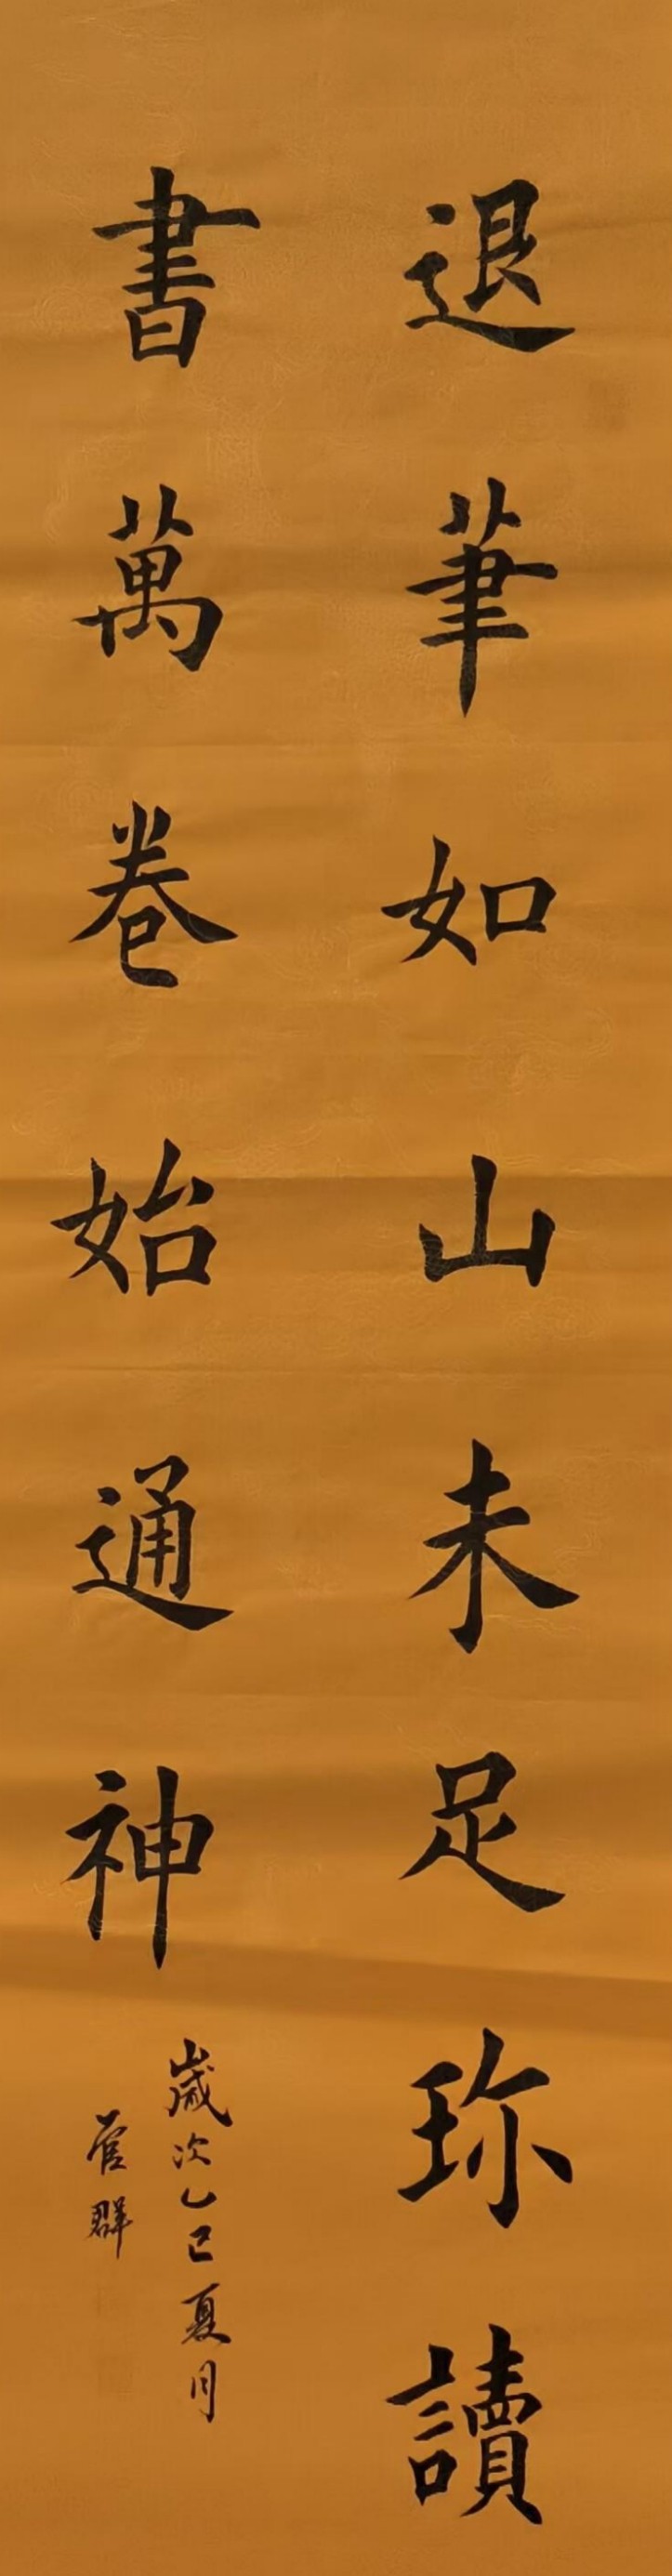 退筆如山未足珎讀
書萬卷始通神
歲次乙巳夏月
菅群